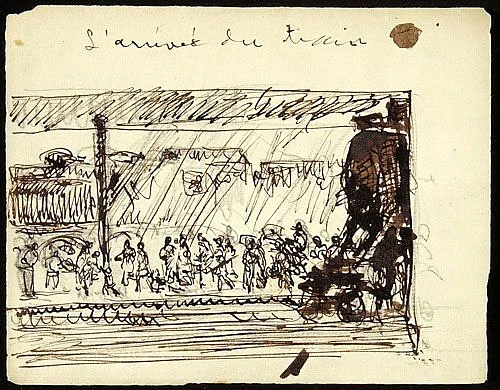 L'arrivée du train